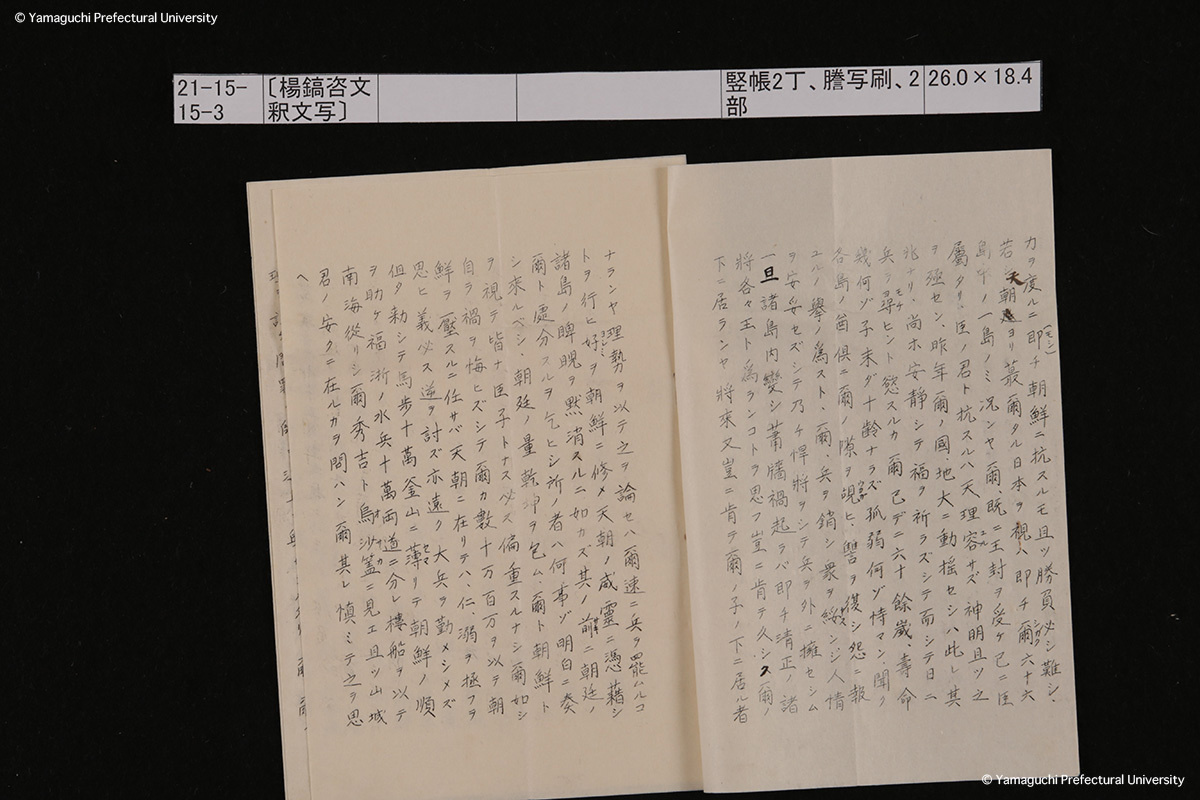 © Yamaguchi Prefectural University
21-15-15-3
〔楊鎬咨文釈文写〕
竪帳2丁、謄写刷、2部
26.0×18.4
力ヲ度ルニ即チ朝鮮ニ抗スルモ且ツ勝負必シ難シ、
若天朝ヨリ蕞爾タル日本ヲ視ハ即チ爾六十六
島中ノ一島ノミ況ンヤ爾、既ニ王封ヲ受ケ已ニ臣
屬タリ、臣ノ君ト抗スルハ天理容サズ神明且ツ之
ヲ殛セン、昨年爾ノ國地大ニ動揺セシハ此レ其
兆ナリ、尚ホ安靜シテ福ヲ祈ラズシテ而シテ日ニ
兵ヲ尋ヒント慾スルカ爾已デニ六十餘歳、壽命
幾何ゾ子未ダ十齢ナラズ孤弱何ゾ恃マン、聞ク
各島ノ酋倶ニ爾ノ隙ヲ覗ヒ、讐ヲ復シ怨ニ報
ユルノ擧ノ爲スト、爾、兵ヲ銷シ衆ヲ綏ンジ人情
ヲ安妥セズシテ乃チ悍將ヲシテ兵ヲ外ニ擁セシム
一旦諸島内變シ蕭牆禍起ラバ即チ清正ノ諸
將各々王ト爲ランコトヲ思フ豈ニ肯テ久シク爾ノ
下ニ居ランヤ將來又豈ニ肯テ爾ノ子ノ下ニ居ル者
ナランヤ理勢ヲ以テ之ヲ論セハ爾速ニ兵ヲ罷ムルコ
トヲ行ヒ好ヲ朝鮮ニ修メ天朝ノ威靈ニ憑藉シ
諸島ノ睥睨ヲ黙消スルニ如カス其ノ前ニ朝廷ノ
爾ト處分スルヲ乞ヒシ所者ハ何事ゾ明白ニ奏
シ來ルベシ、朝廷ノ量乾坤ヲ包ム、爾ト朝鮮ト
ヲ視テ皆ナ臣子トナス必ス偏重スルナシ爾如シ
自ラ禍ヲ悔ヒズシテ爾カ數十万百万ヲ以テ朝
鮮ヲ壓スルニ任サバ天朝ニ在リテハ、仁溺ヲ拯フヲ
思ヒ義必ス逆ヲ討ズ亦遠ク大兵ヲ勤メシメズ
但タ勅シテ馬歩十萬釜山ニ薄リテ朝鮮ノ順
ヲ助ケ福浙ノ水兵十萬両道ニ分レ樓船ヲ以テ
南海從リシ爾秀吉ト烏沙盖ニ見エ且ツ山城
君ノ安クニ在ルカヲ問ハン爾其レ慎ミテ之ヲ思
ヘ
© Yamaguchi Prefectural University